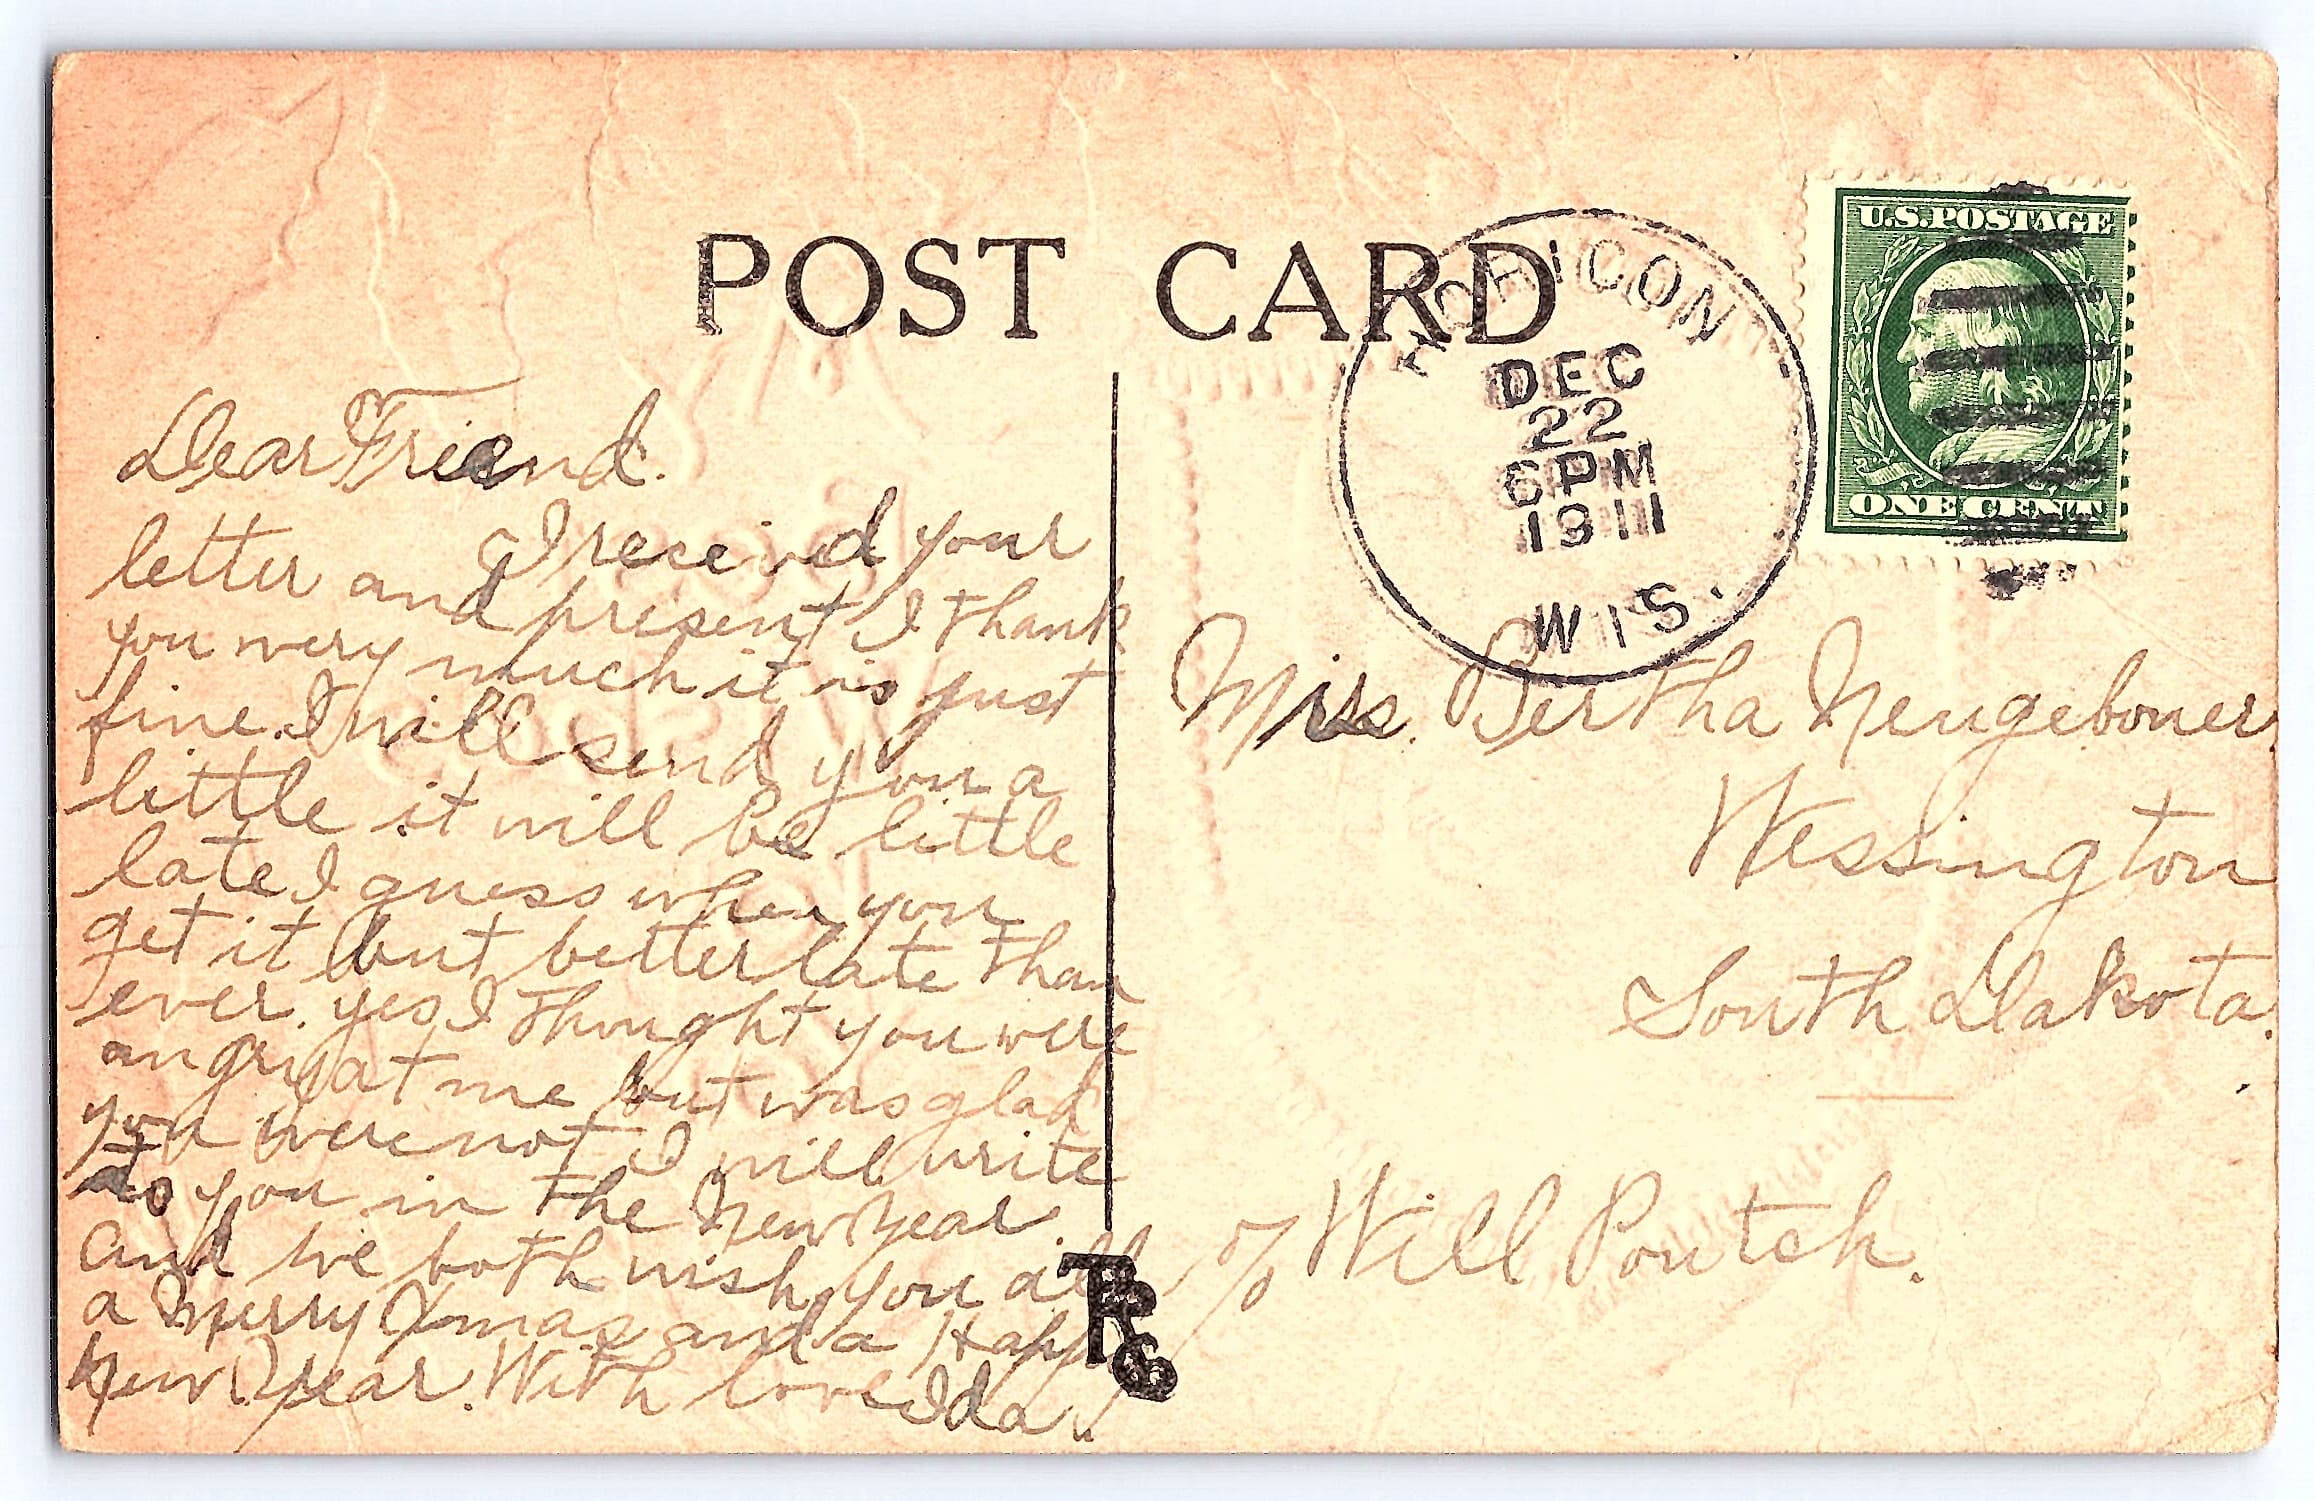 POST CARD
HORICON
DEC
22
6 PM
1911
WIS.
U.S. POSTAGE
ONE CENT
Dear Friend.
I received your
letter and present I thank
you very much it is just
fine. I will send you a
little it will be little
late I guess when you
get it but better late than
ever. yes I thought you were
angry at me but was glad
you were not I will write
to you in the New Year.
and we both wish you all
a Merry Xmas and a Happy
New Year. With love Ida.
Miss. Bertha Neugeboner.
Wessington
South Dakota.
c/o Will Poutch.